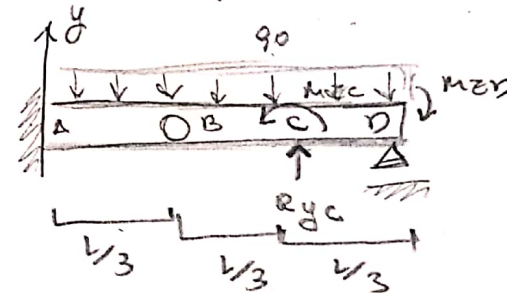 y
q0
Mzc
MzD
A
B
C
D
Ryc
L/3
L/3
L/3